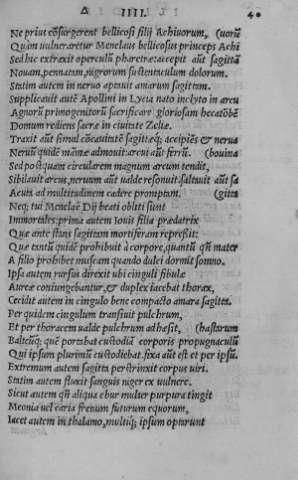 IIII. 40
Ne prius cōsurgerent bellicosi filij Achiuorum, (uorū
Quàm uulneraretur Menelaus bellicosus princeps Achi
Sed hic extraxit operculū pharetræ: accepit aūt sagittā
Nouam, pennatam, nigrorum sustentaculum dolorum.
Statim autem in neruo aptauit amaram sagittam.
Supplicauit autē Apollini in Lycia nato inclyto in arcu
Agnorū primogenitorū sacrificare gloriosam hecatōbē
Domum rediens sacræ in ciuitate Zeliæ.
Traxit aūt simul cōcauitatē sagittæq; accipiēs & nerua
Neruū quidē māmæ admouit: arcui aūt ferrū. (bouina
Sed postquam circularem magnum arcum tendit,
Sibilauit arcus, neruus aūt ualde resonuit, saltauit aūt sa
Acuta ad multitudinem cædere promptam. (gitta
Neq; tui Menelaë Dij beati obliti sunt
Immortales: prima autem Iouis filia prædatrix
Quæ ante stans sagittam mortiferam repreßit:
Quæ tantū quidē prohibuit à corpore, quantū qñ mater
A filio prohibet muscam quando dulci dormit somno.
Ipsa autem rursus direxit ubi cinguli fibulæ
Aureæ coniungebantur, & duplex iacebat thorax,
Cecidit autem in cingulo bene compacto amara sagitta.
Per quidem cingulum transiuit pulchrum,
Et per thoracem ualde pulchrum adhæsit, (hastarum
Balteūq; quē portabat custodiā corporis propugnaculū
Qui ipsum plurimū custodiebat. fixa aūt est et per ipsū.
Extremum autem sagitta perstrinxit corpus uiri.
Statim autem fluxit sanguis niger ex uulnere.
Sicut autem qñ aliqua ebur mulier purpura tingit
Meonia uel caria frenum futurum equorum,
Iacet autem in thalamo, multiq; ipsum optarunt